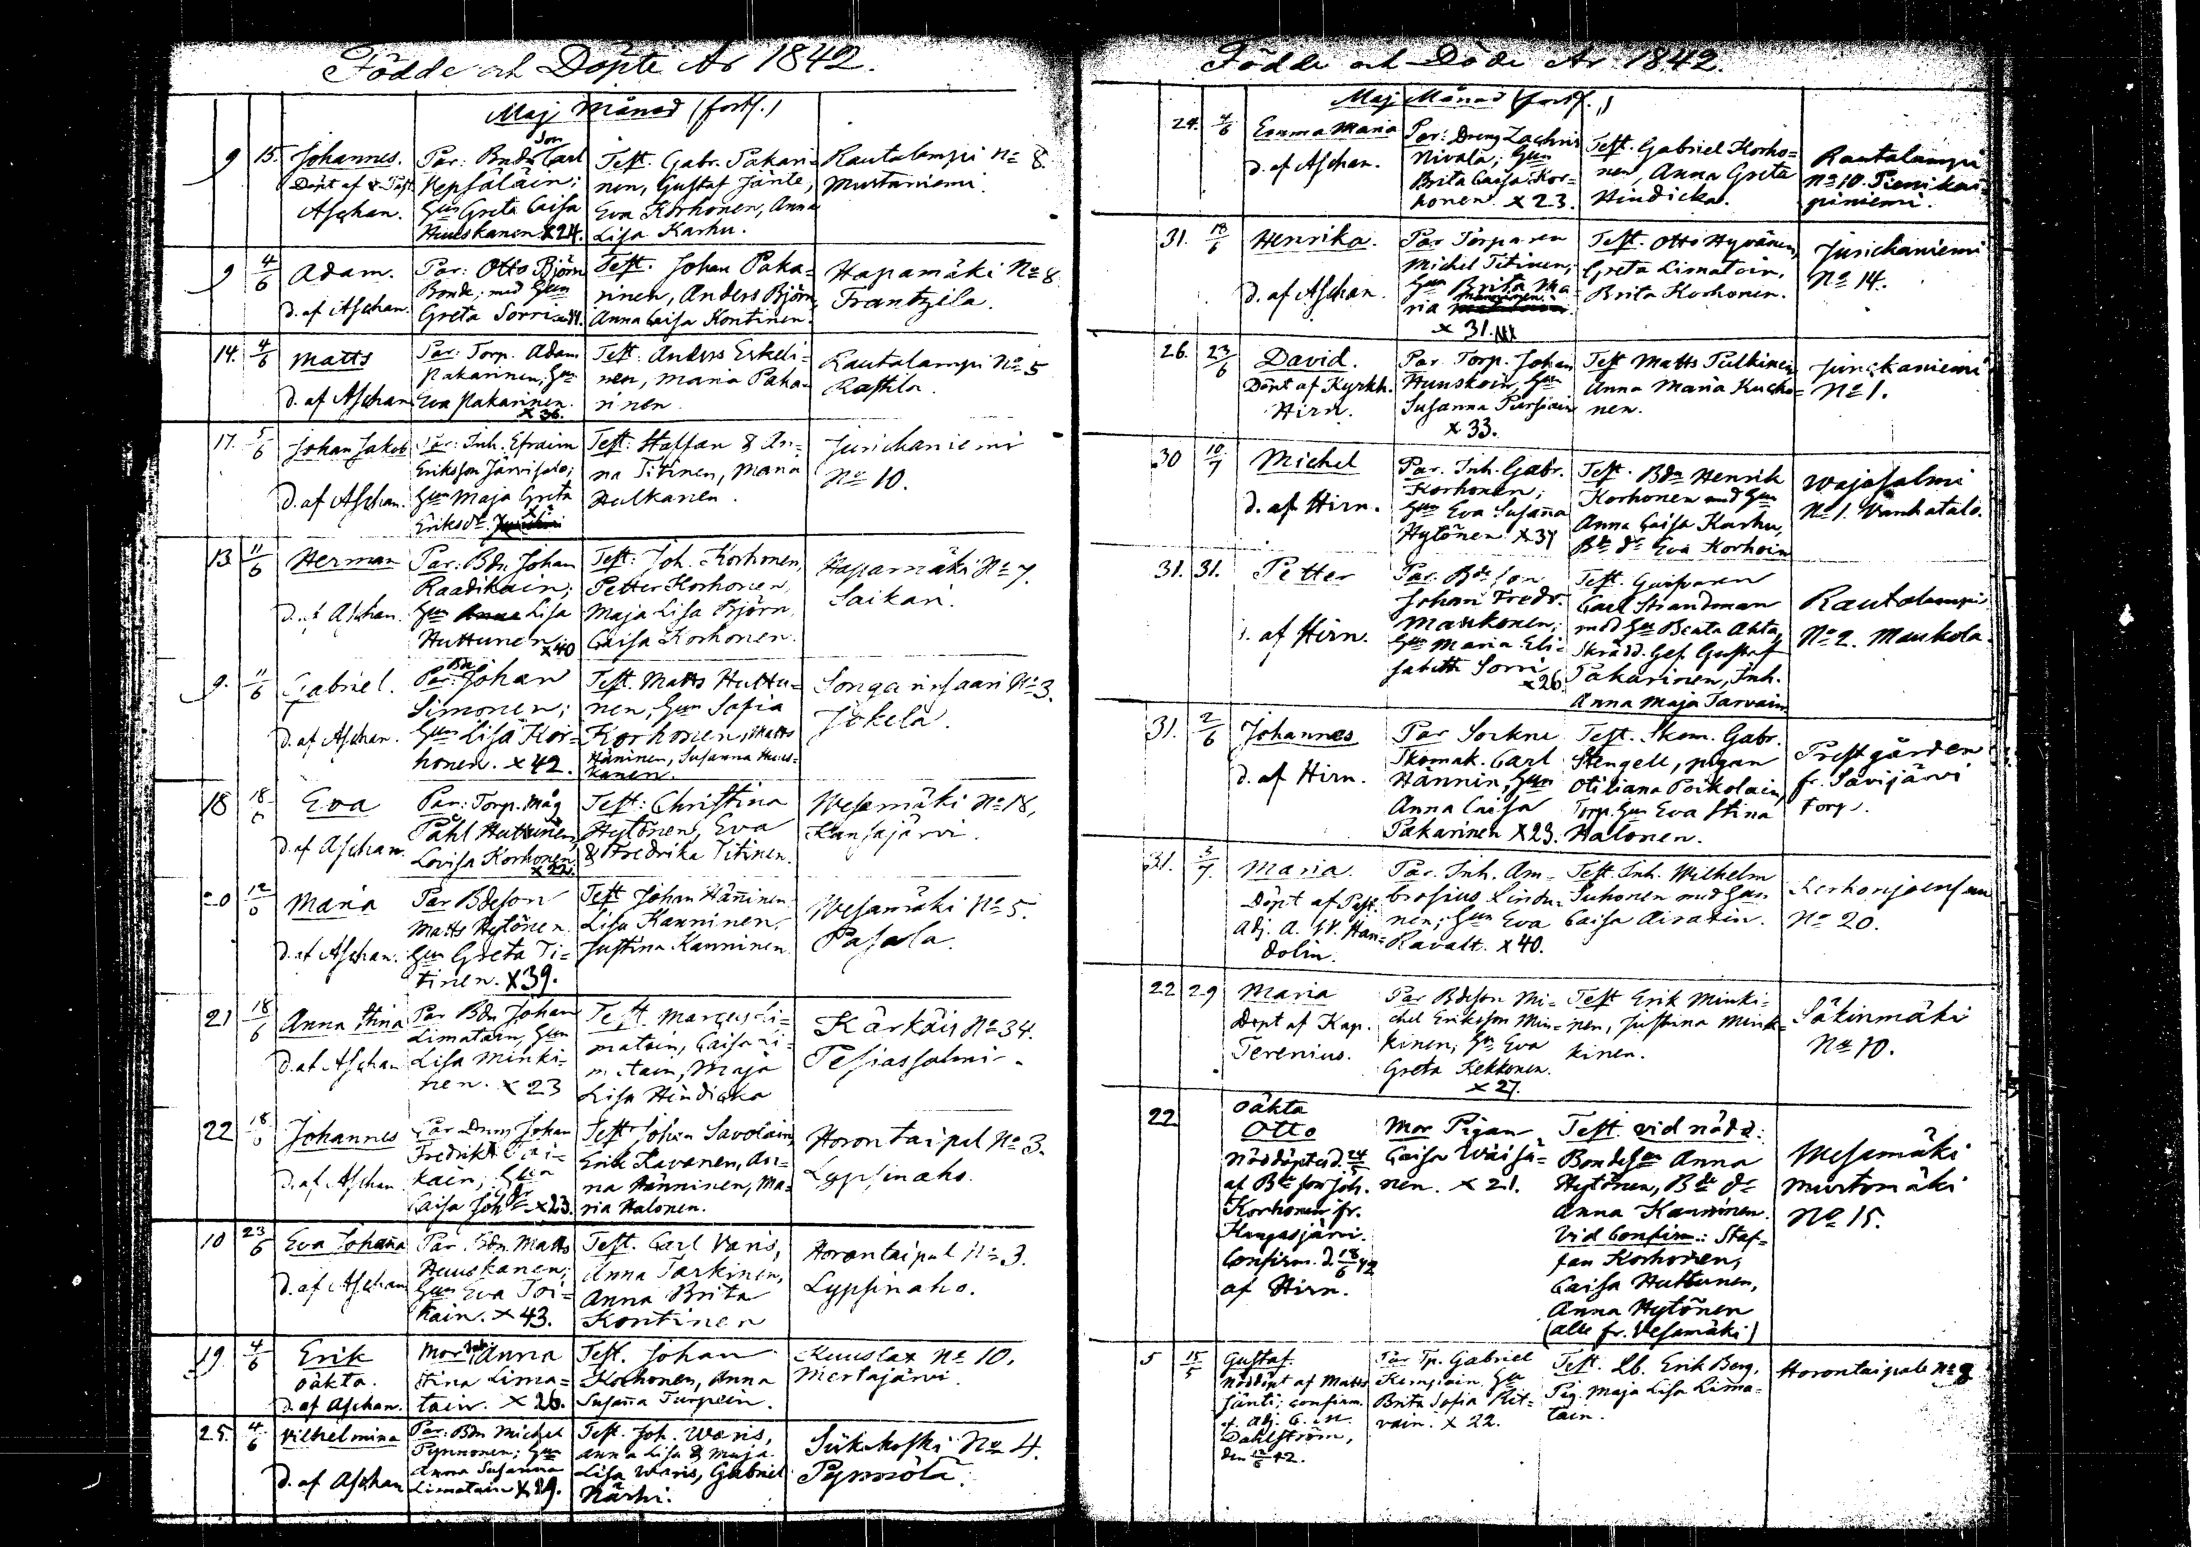 Födde och Döpte År 1842.
Maj Månad (forts.)
9 15. Johannes.
Döpt af v. Past.
Aschan.
Par: Bndeson Carl
Hepsäläin;
Hun Greta Caisa
Huuskanen x 24.
Test. Gabr. Pakari-
nen, Gustaf Jänte,
Eva Korhonen, Anna
Lisa Karhu.
Rautalampi No 8.
Murtoniemi.
9 4/6 Adam.
d. af Aschan.
Par: Otto Björn
Bonde, med Hun
Greta Sorri
Test. Johan Paka-
rinen, Anders Björn,
Anna Caisa Kontinen.
Hapamäki No 8
Frantzila.
14. 4/6 Matts
d. af Aschan
Par: Torp. Adam
Pakarinen, Hun
Eva Pakarinen.
x 36.
Test: Anders Eskeli-
nen, Maria Paka-
rinen.
Rautalampi No 5
Rastila.
17. 5/6 Johan Jakob
d. af Aschan.
Par: Inh. Efraim
Eriksson Järvisalo;
Hun Maja Greta
Eriksdr.
Test: Staffan & An-
na Titinen, Maria
Hulkanen.
Junickaniemi
No 10.
13 11/6 Herman
d. af Aschan.
Par: Bdn Johan
Raadikain;
Hun Lisa
Huttunen x 40
Test: Joh. Korhonen,
Petter Korhonen,
Maja Lisa Björn,
Caisa Korhonen.
Hapamäki No 7.
Saikari.
9. 11/6 Gabriel.
d. af Aschan.
Par: Bdn Johan
Simonen;
Hun Lisa Kor-
honen. x 42.
Test. Matts Huttu-
nen, Hun Sofia
Korhonen, Matts
Häninen, Susanna Huus-
kanen.
Songarinsaari No 3.
Jokela.
18 18/6 Eva
d. af Aschan.
Par: Torp. Måg
Påhl Huttunen,
Lovisa Korhonen.
x 22.
Test: Christina
Hytönen, Eva
& Fredrika Titinen.
Wesamäki No 18,
Kansajärvi.
20 12/6 Maria
d. af Aschan.
Par Bdeson
Matts Hytönen
Hun Greta Ti-
tinen. x 39.
Test Johan Häninen
Lisa Kanninen,
Justina Kanninen.
Wesamäki No 5.
Pasala.
21 18/6 Anna Stina
d. af Aschan
Par Bdn Johan
Limatain, Hun
Lisa Minki-
nen. x 23
Test. Marcus Li-
matain, Caisa Li-
matain, Maja
Lisa Hindicka
Kärkäis No 34.
Pesiassalmi.
22 18/6 Johannes
d. af Aschan
Par Dräng Johan
Fredrik
kain; Hun
Caisa Johdr x 23.
Test Johan Savolain,
Erik Kavanen, An-
na Hänninen, Ma-
ria Halonen.
Horontaipal No 3.
Lypsinaho.
10 23/6 Eva Johanna
d. af Aschan
Par Bdn Matts
Huuskanen;
Hun Eva Toi-
kain. x 43.
Test. Carl Varis,
Anna Tarkinen,
Anna Brita
Kontinen
Horontaipal No 3.
Lypsinaho.
19 4/6 Erik
oäkta.
d. af Aschan.
Mor Anna
Stina Lima-
tain. x 26.
Test. Johan
Korhonen, Anna
Susanna Turpein.
Kuuslax No 10.
Mertajärvi.
25. 4/6 Vilhelmina
d. af Aschan
Par: Bdn Michel
Pynnonen; Hun
Anna Susanna
Limatain x 29.
Test. Joh. Waris,
Anna Lisa & Maja
Lisa Waris, Gabriel
Närhi.
Sükikoski No 4.
Pynnölä.
Födde och Döde År 1842.
Maj Månad (forts.)
24. 4/6 Emma Maria
d. af Aschan.
Par: Dreng Zachris
Nivala; Hun
Brita Caisa Kor-
honen x 23.
Test. Gabriel Korho-
nen, Anna Greta
Hindicka.
Rautalampi
No 10.
31. 18/6 Henrika.
d. af Aschan.
Par Torparen
Michel Titinen;
Hun Brita Ma-
ria Manninen
x 31.
Test. Otto Hyvönen,
Greta Limatain,
Brita Korhonen.
Junickaniemi
No 14.
26. 23/6 David.
Döpt af Kyrkh.
Hirn.
Par. Torp. Johan
Huuskoin, Hun
Susanna Pursiain
x 33.
Test Matts Pulkinen
Anna Maria Kucko-
nen.
Junickaniemi
No 1.
30 10/7 Michel
d. af Hirn.
Par. Inh. Gabr.
Korhonen;
Hun Eva Susana
Hytönen x 37
Test. Bdn Henrik
Korhonen med Hun
Anna Caisa Karhu,
Bde dr Eva Korhoin
Wajasalmi
No 1. Vanhatalo.
31. 31. Petter
d. af Hirn.
Par. Bdeson
Johan Fredr.
Maukonen;
Hun Maria Eli-
sabeth Sorri
x 26
Test. Garfvaren
Carl Strandman
med Hun Beata Ahta,
Skrädd. Ges. Gustaf
Pakarinen, Inh.
Anna Maja Tarvain
Rautalampi
No 2. Maukola.
31. 2/6 Johannes
d. af Hirn.
Par Sockne
Skomak. Carl
Hännin, Hun
Anna Caisa
Pakarinen x 23.
Test. Skom. Gabr.
Stengell, pigan
Otiliana Poikolain,
Torp. Hun Eva Stina
Halonen.
Prestgården
fr. Savijärvi
torp.
31. 3/7. Maria
Döpt af Past.
Adj. A. W. Han-
dolin.
Par. Inh. Am-
brosius Lindu-
nen; Hun Eva
Ravatt. x 40.
Test. Inh. Wilhelm
Suhonen med Hun
Caisa Airaxin.
Kerkonjoensuu
No 20.
22 29 Maria
Döpt af Kap.
Terenius.
Par Bdeson Mi-
chel Eriksson Min-
kinen; Hun Eva
Greta Kekkonen.
x 27.
Test Erik Minki-
nen, Justina Mink-
kinen.
Säkinmäki
No 10.
22 oäkta
Otto
Nöddöpt d. 24/5
af Bde son Joh.
Korhonen fr.
Kangasjärvi.
Confirm. d. 18/6 42
af Hirn.
Mor Pigan
Caisa Wäisä-
nen. x 21.
Test. vid nödd:
Bondehun Anna
Hytönen, Bde dr
Anna Kanninen.
Vid Confirm.: Staf-
fan Korhonen,
Caisa Huttunen,
Anna Hytönen
(alle fr. Vesamäki)
Wesamäki
Murtomäki
No 15.
5 15/5 Gustaf.
Nöddöpt af Matts
Jänti; confirm.
af Adj. C. M.
Dahlström,
den
Par Tp. Gabriel
Kempain, Hun
Brita Sofia Rit-
vain. x 22.
Test. Lb. Erik Berg,
Pig. Maja Lisa Lima-
tain.
Horontaipale No 8